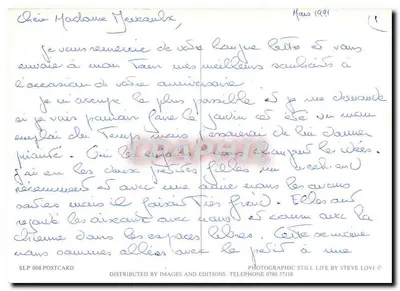 Mars 1991
Chère Madame
je vous remercie de votre longue lettre et vous
envoie à mon tour mes meilleurs souhaits à
l'occasion de votre anniversaire
je m'occupe le plus possible et je me demande
si je vais pouvoir faire le jardin cet été vu mon
emploi du temps mais essaierai de lui donner
priorité.
j'ai eu les deux petites filles
récemment et avec une amie nous les avons
sorties mais il faisait très froid. Elles ont
regardé les oiseaux avec nous et couru avec la
chienne dans les espaces libres. Cette semaine
nous sommes allées avec le petit à une
SLP 008 POSTCARD
PHOTOGRAPHIC STILL LIFE BY STEVE LOVI ©
DISTRIBUTED BY IMAGES AND EDITIONS. TELEPHONE 0780 57118